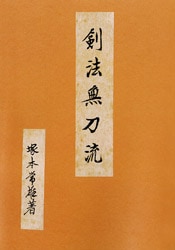 剣法無刀流
塚本常雄著